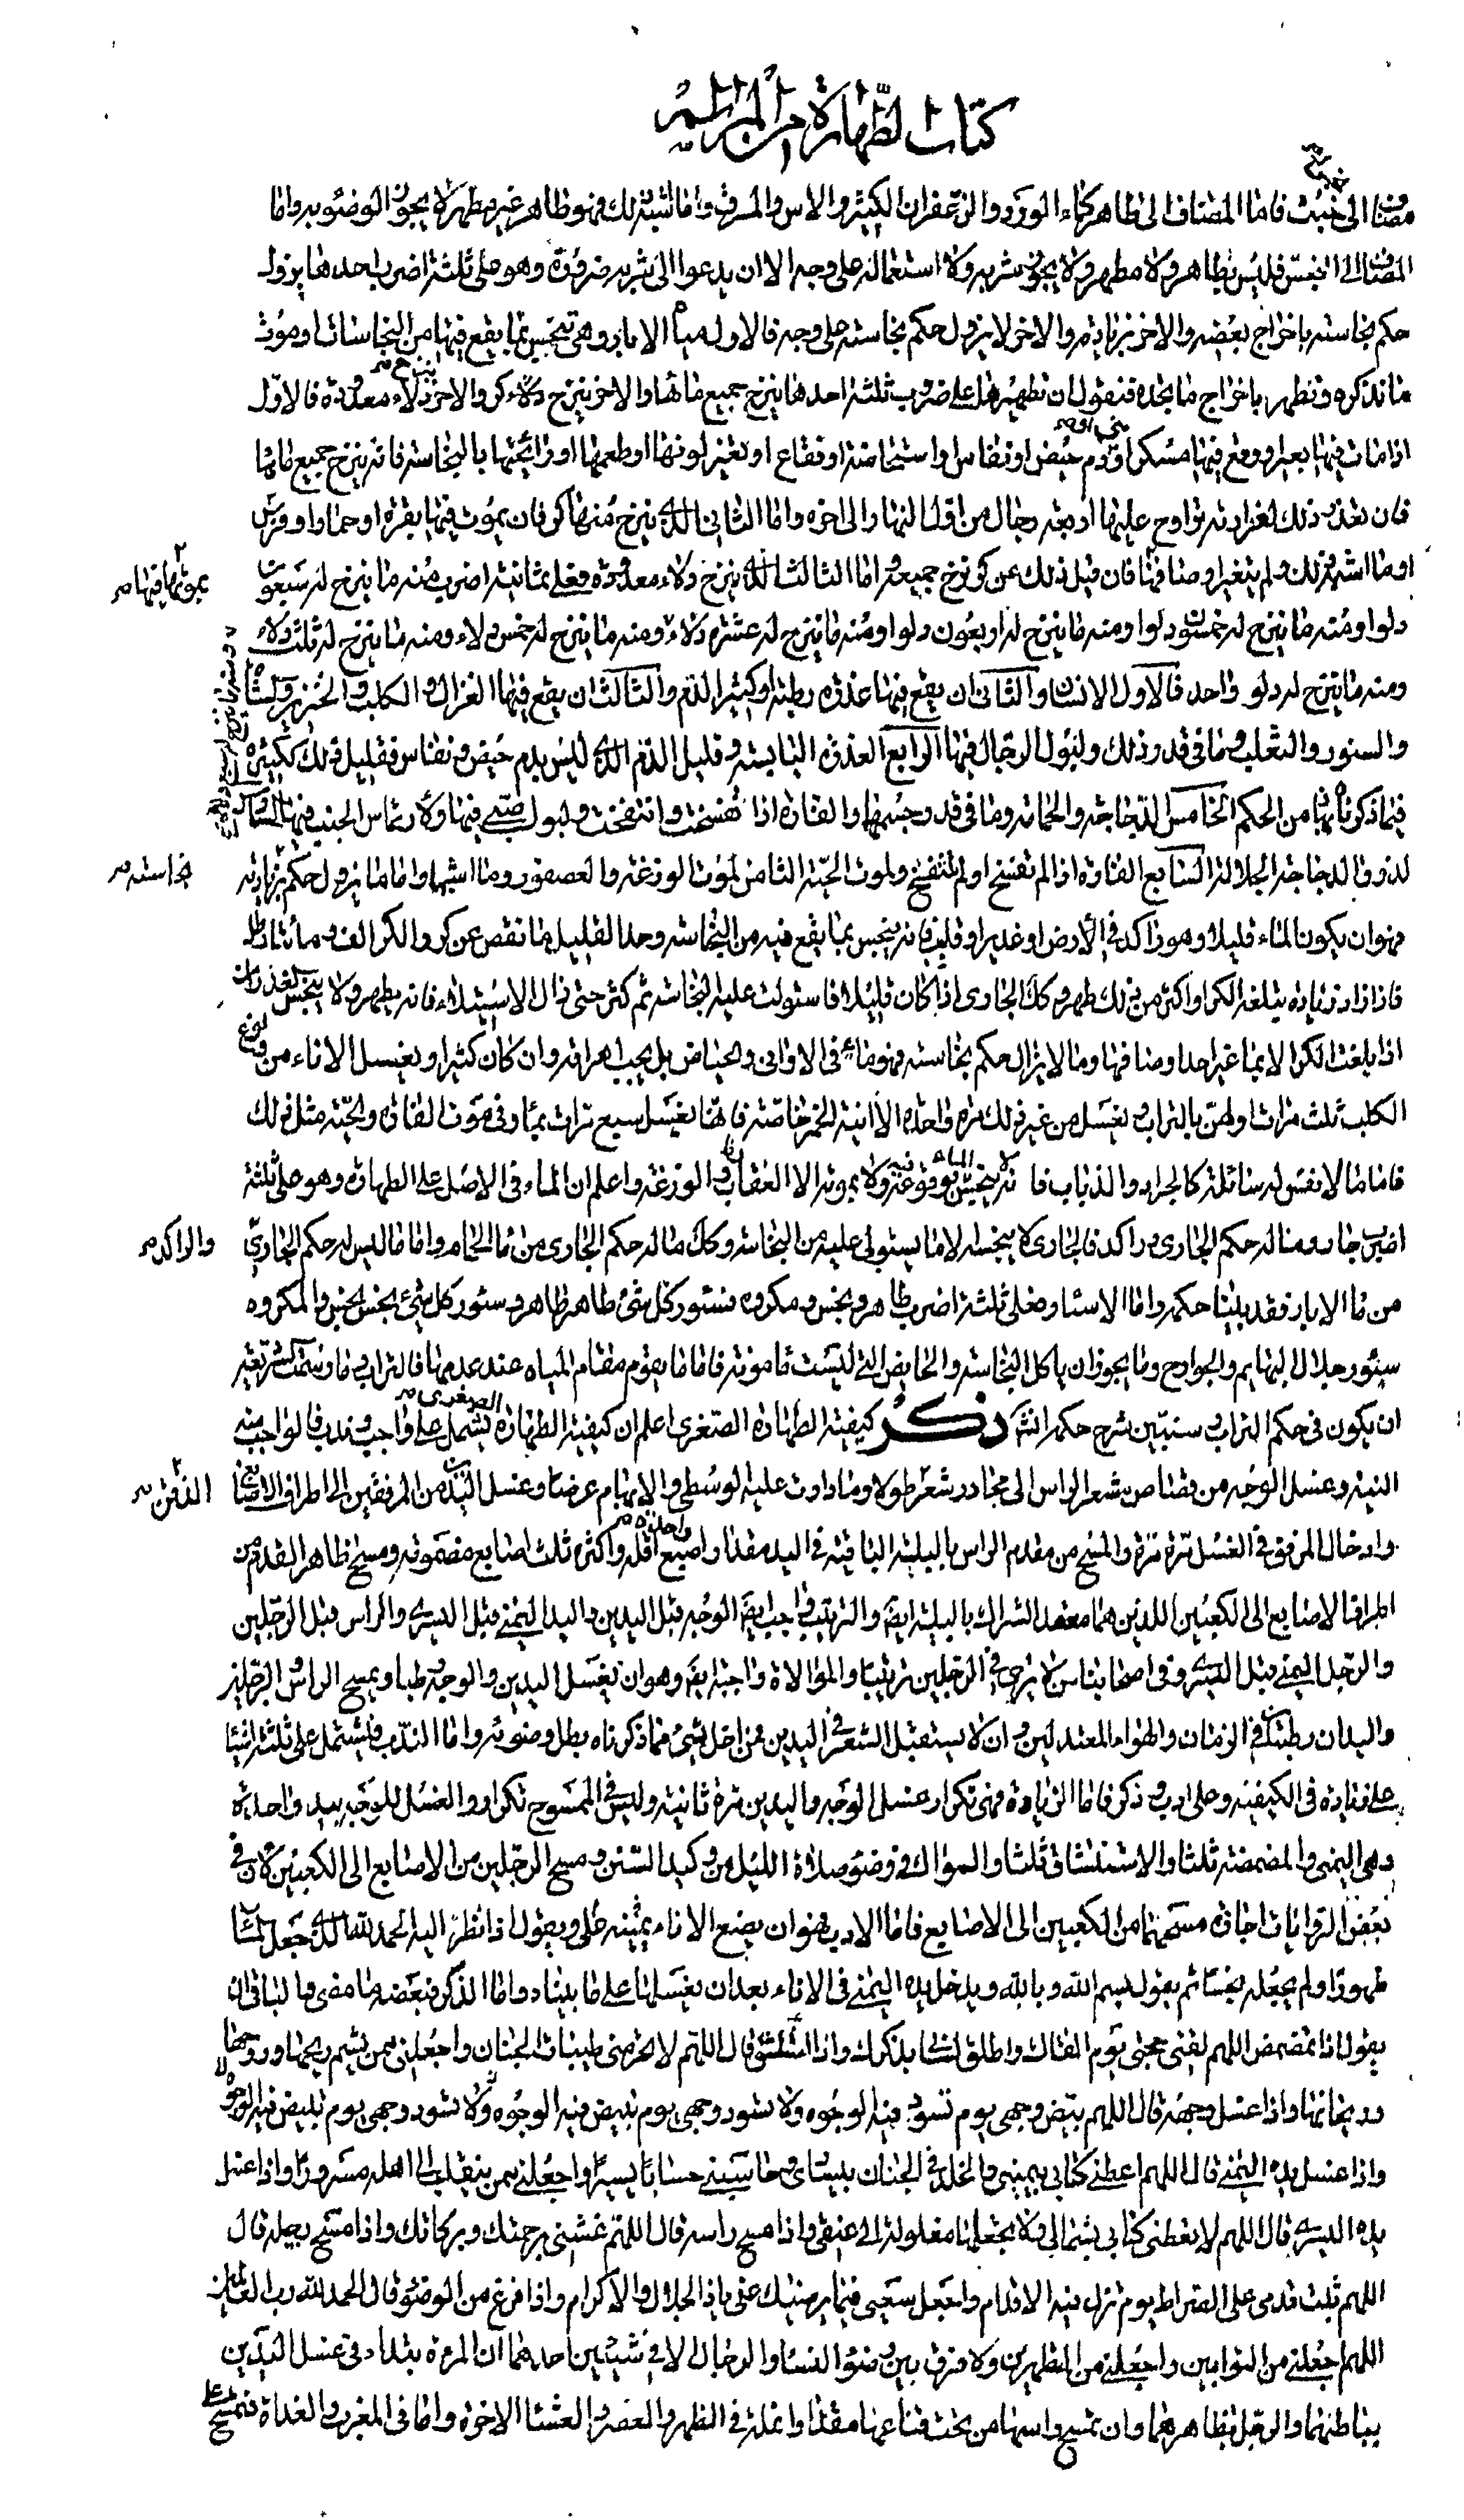 كتاب الطهارة من المراسم
مضاف الى نجس فاما المضاف الى طاهر كماء الورد والزعفران الكثير والاس والمرق وما اشبه ذلك فهو طاهر غير مطهر لا يجوز الوضوء به واما
المضاف الى النجس فليس بطاهر ولا مطهر ولا يجوز شربه ولا استعماله على وجه الا ان يدعوا الى شربه ضرورة وهو على ثلثة اضرب احدها يزول
حكم نجاسته باخراج بعضه والاخر بزيادته والاخر لا يزول حكم نجاسته على وجه فالاول مياه الابار وهي تنجس بما يقع فيها من النجاسات او موت
ما نذكره وتطهر باخراج ما نحده فنقول ان تطهيرها على ضروب ثلثة احدها ينزح جميع مائها والاخر ينزح كر والاخر دلاء معدودة فالاول
اذا مات فيها بعير او وقع فيها مسكر او دم حيض او نفاس او استحاضة او فقاع او تغير لونها او طعمها او رائحتها بالنجاسة فانه ينزح جميع مائها
فان تعذر ذلك لغزارته تراوح عليها اربعة رجال من اول النهار الى اخره واما الثانى الذى ينزح منها كر فان يموت فيها بقرة او حمار او فرس
او ما اشبه ذلك ولم يتغير اوصافها فان قيل ذلك عن كر نزح جميعه واما الثالث الذى ينزح دلاء معدودة فعلى ثمانية اضرب منه ما ينزح له سبعون
بموتها فيها
دلوا ومنه ما ينزح له خمسون دلوا ومنه ما ينزح له اربعون دلوا ومنه ما ينزح له عشرة دلاء ومنه ما ينزح له خمس دلاء ومنه ما ينزح له ثلث دلاء
ومنه ما ينزح له دلو واحد فالاول الانسان والثانى ان يقع فيها عذرة رطبة او كثير الدم والثالث ان يقع فيها الغزال والكلب والخنزير والشاة
والسنور والثعلب وما في قدر ذلك ولبول الرجال فيها الرابع العذرة اليابسة وقليل الدم الذى ليس بدم حيض ونفاس فقليل ذلك ككثيره
فيما ذكرناه من الحكم الخامس الدجاجة والحمامة وما في قدر جسمها والفارة اذا تفسخت وانتفخت ولبول صبى فيها ولارتماس الجنب فيها السادس
لذرق الدجاجة الجلالة السابع الفارة اذا لم تفسخ او لم تنتفخ ولموت الحية الثامن لموت الوزغة والعصفور وما اشبهها واما ما يزول حكم بزيادته
نجاسته
فهو ان يكون الماء قليلا وهو راكد في الارض او غدير او قليب فانه ينجس بما يقع فيه من النجاسة وحد القليل ما نقص عن كر والكر الف ومأتا رطل
فاذا زاد زيادة تبلغه الكر او اكثر من ذلك طهر وكك الجارى اذا كان قليلا فاستولت عليه النجاسة ثم كثر حتى زال الاستيلاء فانه يطهر ولا ينجس الغدران
اذا بلغت الكر الا بما غير احد اوصافها وما لا يزال حكم نجاسته فهو ماء في الاوانى والحياض بل يجب اهراقه وان كان كثيرا ويغسل الاناء من ولوغ
الكلب ثلث مرات اولهن بالتراب ويغسل من غير ذلك مرة واحدة الا انية الخمر خاصة فانها تغسل سبع مرات بماء وفي موت الفارة والحية مثل ذلك
فاما ما لا نفس له سائلة كالجراد والذباب فانه لا ينجس الماء بوقوعه فيه ولا بموته الا العقارب والوزغة واعلم ان الماء في الاصل على الطهارة وهو على ثلثة
اضرب جار وما له حكم الجارى وراكد فالجارى لا ينجسه الا ما يستولى عليه من النجاسة وكك ما له حكم الجارى من ماء الحمام واما ما ليس له حكم الجارى
والراكد
من ماء الابار فقد بينا حكمه واما الاسئار فعلى ثلثة اضرب طاهر ونجس ومكروه فسئور كل شئ طاهر طاهر وسئور كل شئ نجس نجس والمكروه
سئور جلال البهايم والجوارح وما يجوز ان ياكل النجاسة والحايض التى ليست مامونة فاما ما يقوم مقام المياه عند عدمها فالتراب
ان يكون في حكم التراب وسنبين شرح حكمه انشاء الله ذكر كيفية الطهارة الصغرى اعلم ان كيفية الطهارة الصغرى يشمل على واجب وندب فالواجب منه
النية وغسل الوجه من قصاص شعر الراس الى محادر شعر الذقن طولا وما دارت عليه الوسطى والابهام عرضا وغسل اليدين من المرفقين الى اطراف الاصابع
وادخال المرفق في الغسل مرة مرة والمسح من مقدم الراس بالبلة الباقية في اليد مقدار اصبع واحدة اقله واكثره ثلث اصابع مضمومة ومسح ظاهر القدم من
اطراف الاصابع الى الكعبين اللذين هما معقد الشراك بالبلة ايضا والترتيب واجب ايضا الوجه قبل اليدين واليد اليمنى قبل اليسرى والراس قبل الرجلين
والرجل اليمنى قبل اليسرى وفي اصحابنا من لا يرى في الرجلين ترتيبا والموالاة واجبة ايضا وهو ان يغسل اليدين والوجه رطب ويمسح الراس والرجلين
واليدان رطبتان في الزمان والهواء المعتدلين وان لا يستقبل الشعر في اليدين فمن اخل بشئ مما ذكرناه بطل وضوئه واما الندب فيشتمل على ثلثة اشياء
على زيادة في الكيفية وعلى ادب وذكر فاما الزيادة فهى تكرار غسل الوجه واليدين مرة ثانية وليس في الممسوح تكرار والغسل للوجه بيد واحدة
وهى اليمنى والمضمضة ثلثا والاستنشاق ثلثا والسواك وفي وضوء صلاة الليل من وكيد السنن ومسح الرجلين من الاصابع الى الكعبين لان في
بعض الروايات اجازة مسحهما من الكعبين الى الاصابع فاما الادب فهو ان يضع الاناء يمينه ويقول اذا نظر اليه الحمد لله الذى جعل الماء
طهورا ولم يجعله نجسا ثم يقول بسم الله وبالله ويدخل يده اليمنى في الاناء بعد ان يغسلها على ما بيناه واما الذكر فبعضه ما مضى والباقى ان
يقول اذا تمضمض اللهم لقنى حجتى يوم القاك واطلق لسانى بذكرك واذا استنشق قال اللهم لا تحرمنى طيبات الجنان واجعلنى ممن يشم ريحها وروحها
وريحانها واذا غسل وجهه قال اللهم بيض وجهى يوم تسود فيه الوجوه ولا تسود وجهى يوم تبيض فيه الوجوه
واذا غسل يده اليمنى قال اللهم اعطنى كتابى بيمينى والخلد في الجنان بيسارى وحاسبنى حسابا يسيرا واجعلنى ممن ينقلب الى اهله مسرورا واذا غسل
يده اليسرى قال اللهم لا تعطنى كتابى بشمالى ولا تجعلها مغلولة الى عنقى واذا مسح راسه قال اللهم غشنى برحمتك وبركاتك واذا مسح رجليه قال
اللهم ثبت قدمى على الصراط يوم تزل فيه الاقدام واجعل سعيى فيما يرضيك عنى ياذا الجلال والاكرام واذا فرغ من الوضوء قال الحمد لله رب العالمين
اللهم اجعلنى من التوابين واجعلنى من المتطهرين ولا فرق بين وضوء النساء والرجال الا في شيئين احدهما ان المرءة تبتداء في غسل اليدين
بباطنهما والرجل بظاهرهما وان تمسح راسها من تحت قناعها مقدار انملة في الظهر والعصر والعشاء الاخرة واما في المغرب والغداة فتمسح